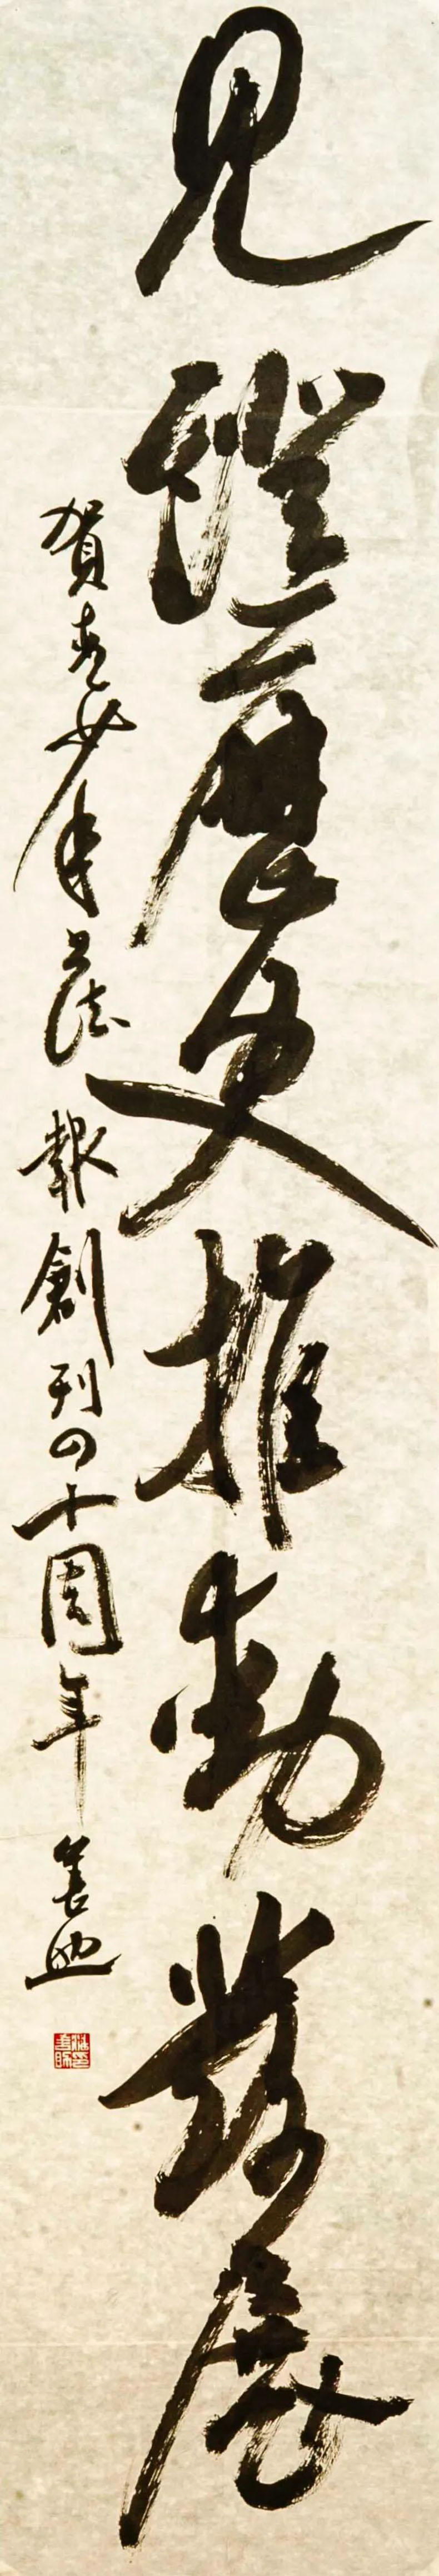 見證歷史推動發展
賀青少年書法報創刊四十周年 善